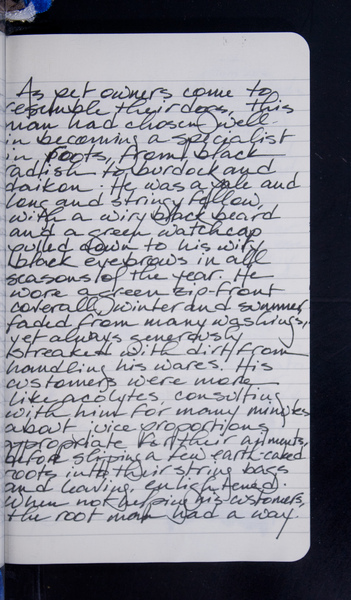 As pet owners come to
resemble their dogs, this
man had chosen well
in becoming a specialist
in roots, from black
radish to burdock and
daikon. He was a pale and
long and stringy fellow,
with a wiry black beard
and a green watchcap
pulled down to his wiry
black eyebrows in all
seasons of the year. He
wore a green zip-front
coverall, winter and summer,
faded from many washings,
yet always generously
streaked with dirt from
handling his wares. His
customers were more
like acolytes, consulting
with him for many minutes
about juice proportions
appropriate for their ailments,
before slipping a few earth-caked
roots into their string bags
and leaving, enlightened.
When not helping his customers,
the root man had a way.